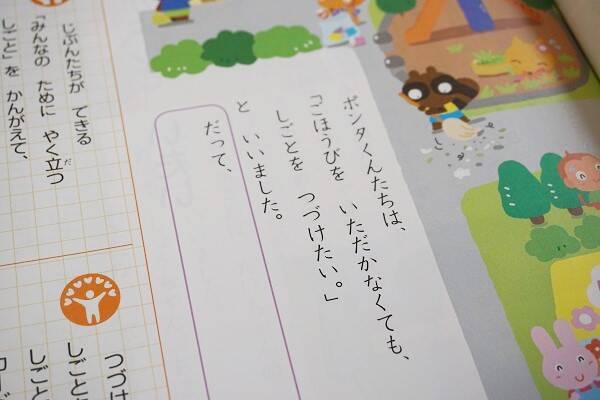 ポンタくんたちは、
「ごほうびを いただかなくても、
しごとを つづけたい。」
と いいました。
だって、
じぶんたちが できる
「みんなの ために やく立つ
だ
しごと」を かんがえて、
つづけ
しごと
しごと
カー